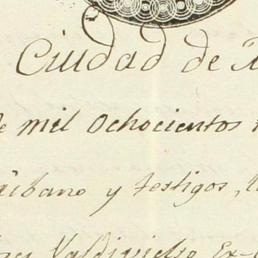 Ciudad de
de mil Ochocientos
y testigos,
Valdivieso Ex-